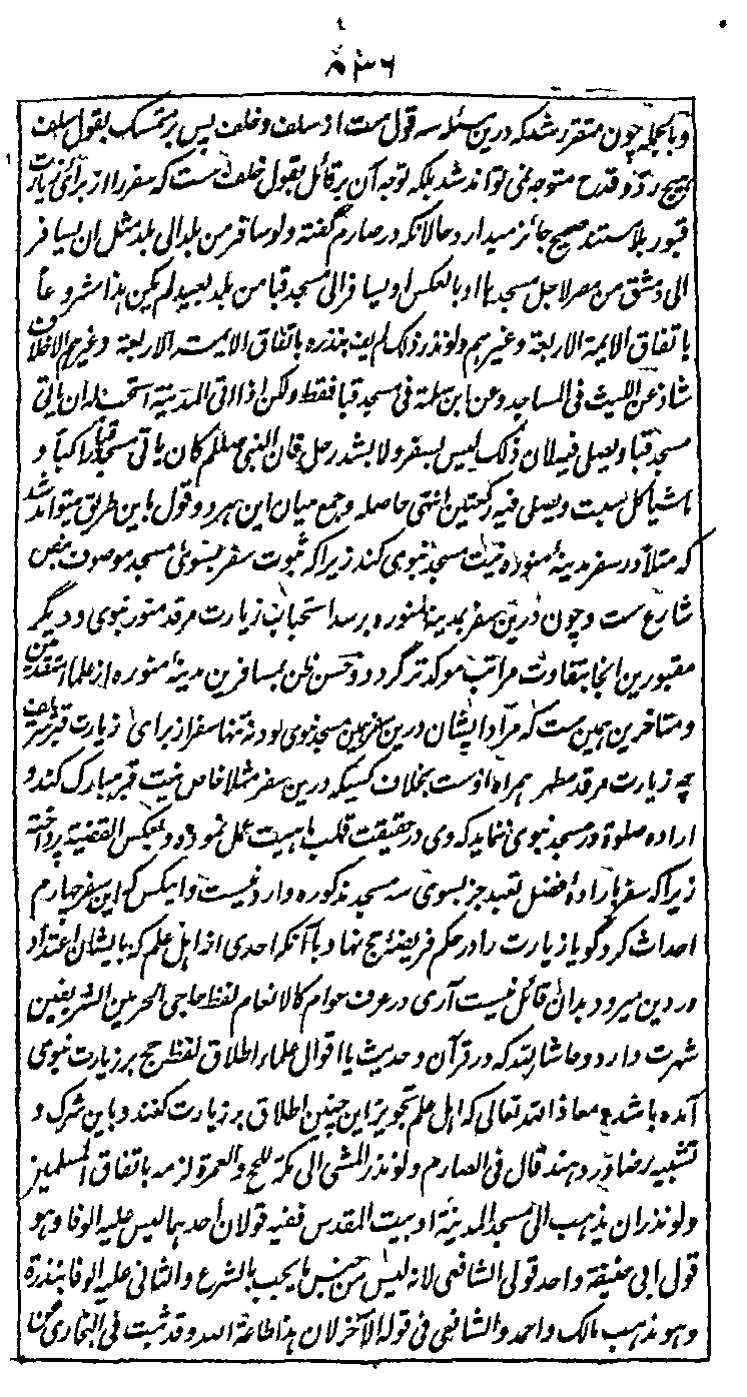 ۵۳۶
و بالجمله چون متقرر شد که درین مسئله سه قول ست از سلف و خلف پس بر متمسک بقول سلف
هیچ رد و قدح متوجه نمی تواند شد بلکه توجه آن بر قائل بقول خلف ست که سفر را از برای زیارت
قبور بلا مستند صحیح جائز میدارد حالانکه در صارم گفته ولو سافر من بلد الی بلد مثل ان یسافر
الی دمشق من مصر لاجل مسجدها او بالعکس او یسافر الی مسجد قبا من بلد بعید لم یکن هذا مشروعا
باتفاق الایمة الاربعة وغیرهم ولو نذر ذلک لم یف بنذره باتفاق الایمة الاربعة وغیرهم الا خلاف
شاذ عن اللیث فی المساجد وعن ابن سلمة فی مسجد قبا فقط ولکن اذا اتی المدینة استحب له ان یاتی
مسجد قبا ویصلی فیه لان ذلک لیس بسفر ولا بشد رحل فان النبی صللم کان یاتی مسجد قبا راکبا و
ماشیا کل سبت ویصلی فیه رکعتین انتهی حاصله و جمع میان این هر دو قول باین طریق میتواند شد
که مثلا در سفر مدینهٔ منوره نیت مسجد نبوی کند زیرا که ثبوت سفر بسوی مسجد موصوف بنص
شارع ست و چون درین سفر بمدینهٔ منوره برسد استحباب زیارت مرقد منور نبوی و دیگر
مقبورین آنجا بتفاوت مراتب موکد تر گردد و حسن ظن بمسافرین مدینهٔ منوره از علماء متقدمین
و متاخرین همین ست که مراد ایشان درین سفر همین مسجد نبوی بود نه تنها سفر از برای زیارت قبر شریف
چه زیارت مرقد مطهر همراه اوست بخلاف کسیکه درین سفر مثلا خاص نیت قبر مبارک کند و
اراده صلوة در مسجد نبوی ننماید که وی در حقیقت قلب ماهیت عمل نموده و بعکس القضیة پرداخته
زیرا که سفر بارادهٔ فضل تعبد جز بسوی سه مسجد مذکوره وارد نیست و اینکس که این سفر چهارم
احداث کرد گویا زیارت را در حکم فریضهٔ حج نهاد با آنکه احدی از اهل علم که بایشان اعتداد
در دین میرود بدان قائل نیست آری در عرف عوام کالانعام لفظ حاجی الحرمین الشریفین
شهرت دارد و حاشا لله که در قرآن و حدیث یا اقوال علماء اطلاق لفظ حج بر زیارت نبوی
آمده باشد معاذ الله تعالی که اهل علم تجویز این چنین اطلاق بر زیارت کنند و باین شرک و
تشبیه رضا در دهند قال فی الصارم ولو نذر المشی الی مکة للحج والعمرة لزمه باتفاق المسلمین
ولو نذر ان یذهب الی مسجد المدینة او بیت المقدس ففیه قولان احدهما لیس علیه الوفا وهو
قول ابی حنیفة واحد قولی الشافعی لانه لیس من جنس ما یجب بالشرع والثانی علیه الوفا بنذره
وهو مذهب مالک واحمد والشافعی فی قوله الآخر لان هذا طاعة الله وقد ثبت فی البخاری عن